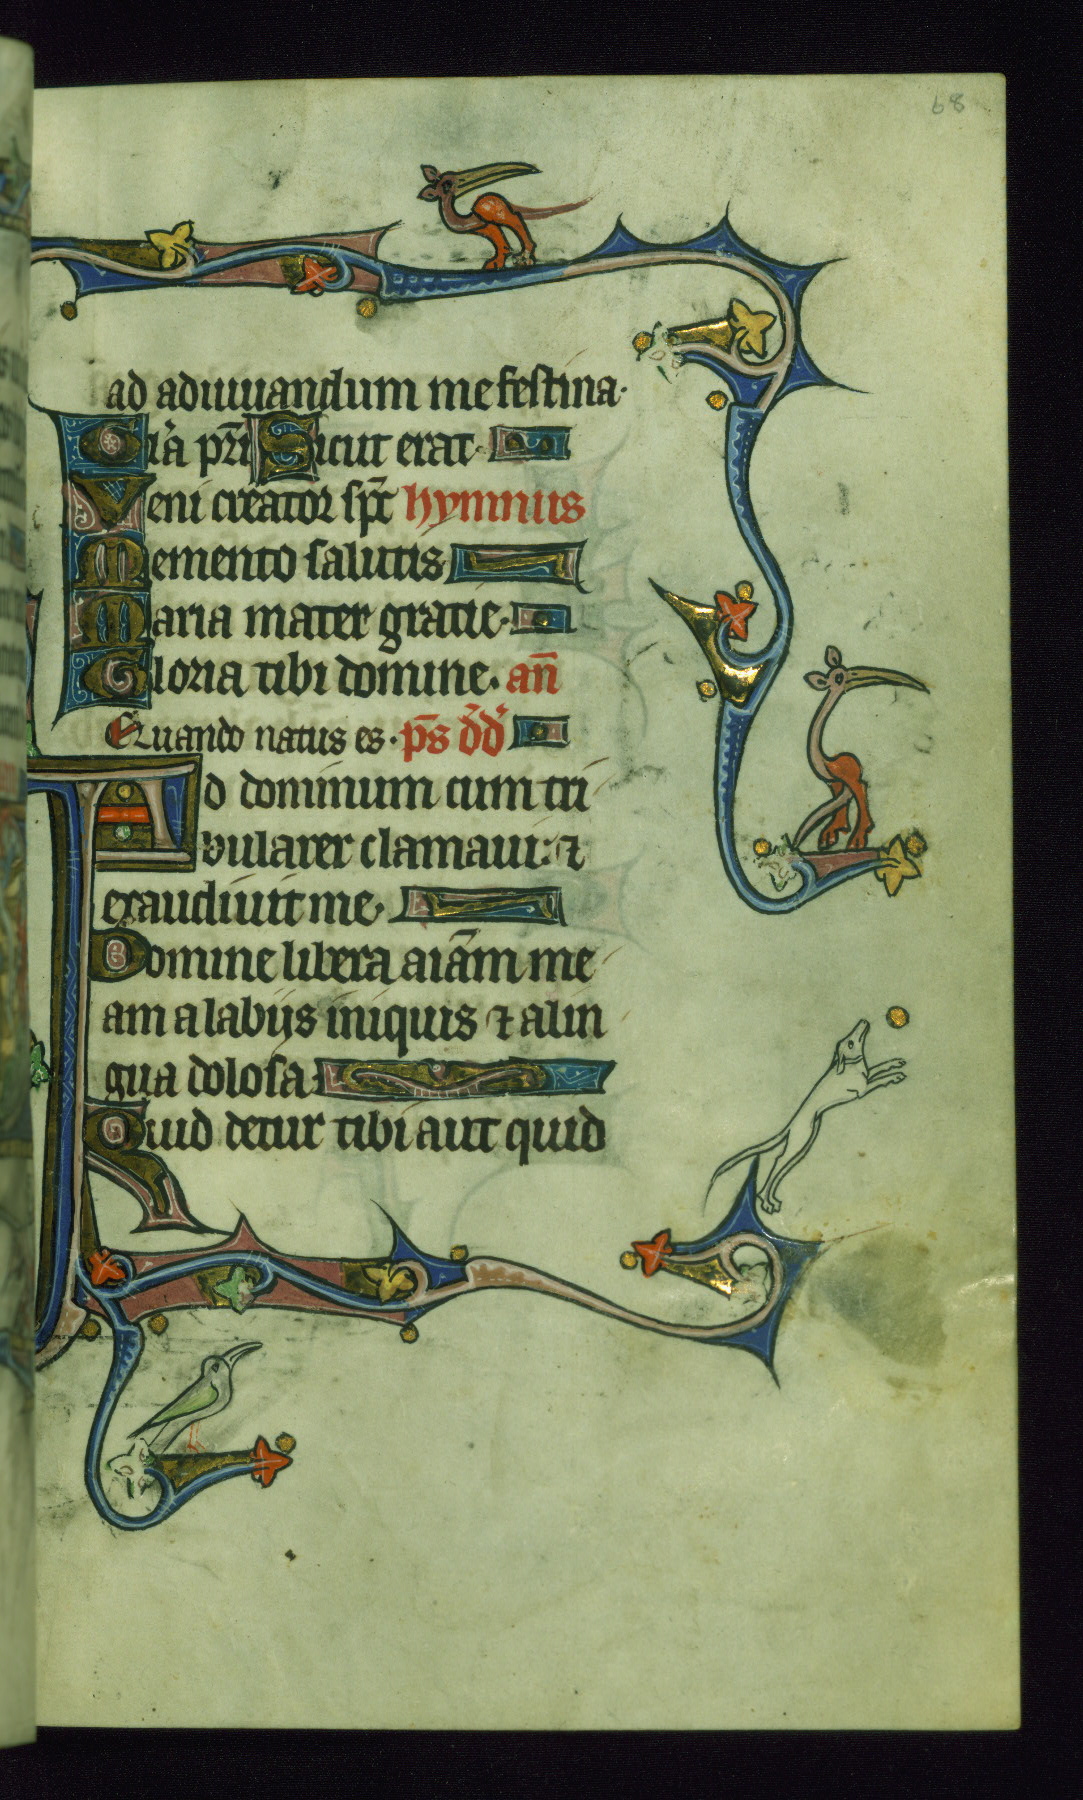 68
ad adiuuandum me festina·
Gl'a pri Sicut erat·
Veni creator sp̄c hymnus
Memento salutis
Maria mater gratie·
Gloria tibi domine· an̄
Quando natus es· p̄s d̄d̄
Ad dominum cum tri
bularer clamaui: ⁊
exaudiuit me·
Domine libera aīam me
am a labijs iniquis ⁊ a lin
gua dolosa·
Quid detur tibi aut quid